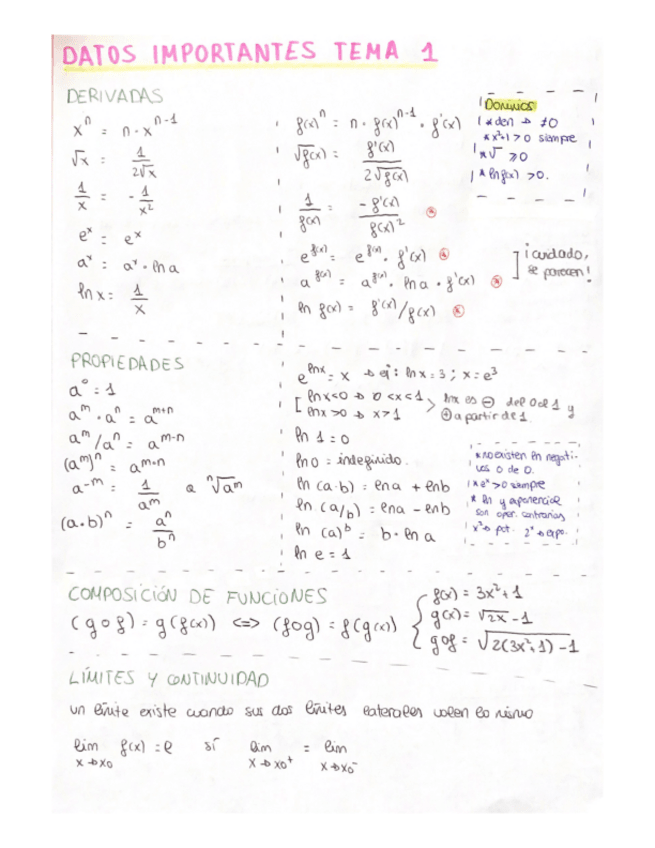 DATOS IMPORTANTES TEMA 1
DERIVADAS
xⁿ = n · xⁿ⁻¹
√x = 1/(2√x)
1/x = - 1/x²
eˣ = eˣ
aˣ = aˣ · ln a
ln x = 1/x
f(x)ⁿ = n · f(x)ⁿ⁻¹ · f'(x)
√f(x) = f'(x)/(2√f(x))
1/f(x) = -f'(x)/f(x)²
e^f(x) = e^f(x) · f'(x)
a^f(x) = a^f(x) · ln a · f'(x)
ln f(x) = f'(x)/f(x)
¡cuidado,
se parecen!
Dominios
* den → ≠0
* x²+1 > 0 siempre
* √ ≥0
* ln f(x) > 0.
PROPIEDADES
a⁰ = 1
aᵐ · aⁿ = aᵐ⁺ⁿ
aᵐ/aⁿ = aᵐ⁻ⁿ
(aᵐ)ⁿ = aᵐ·ⁿ
a⁻ᵐ = 1/aᵐ a ⁿ√aᵐ
(a·b)ⁿ = aⁿ/bⁿ
e^lnx = x → ej: ln x = 3 ; x = e³
[ lnx<0 → 0<x<1
lnx>0 → x>1
> lnx es ⊖ del 0 al 1 y
⊕ a partir de 1
ln 1 = 0
ln 0 = indefinido.
ln (a·b) = lna + lnb
ln (a/b) = lna - lnb
ln (a)ᵇ = b · ln a
ln e = 1
* no existen ln negati-
vos o de 0.
* eˣ > 0 siempre
* ln y exponencial
son oper. contrarias
x² → pot. 2ˣ → expo.
COMPOSICIÓN DE FUNCIONES
(g o f) = g(f(x)) <=> (f o g) = f(g(x))
f(x) = 3x²+1
g(x) = √2x - 1
g o f = √2(3x²+1) - 1
LÍMITES Y CONTINUIDAD
un límite existe cuando sus dos límites laterales valen lo mismo
lim f(x) = l sí lim = lim
x→x₀ x→x₀⁺ x→x₀⁻